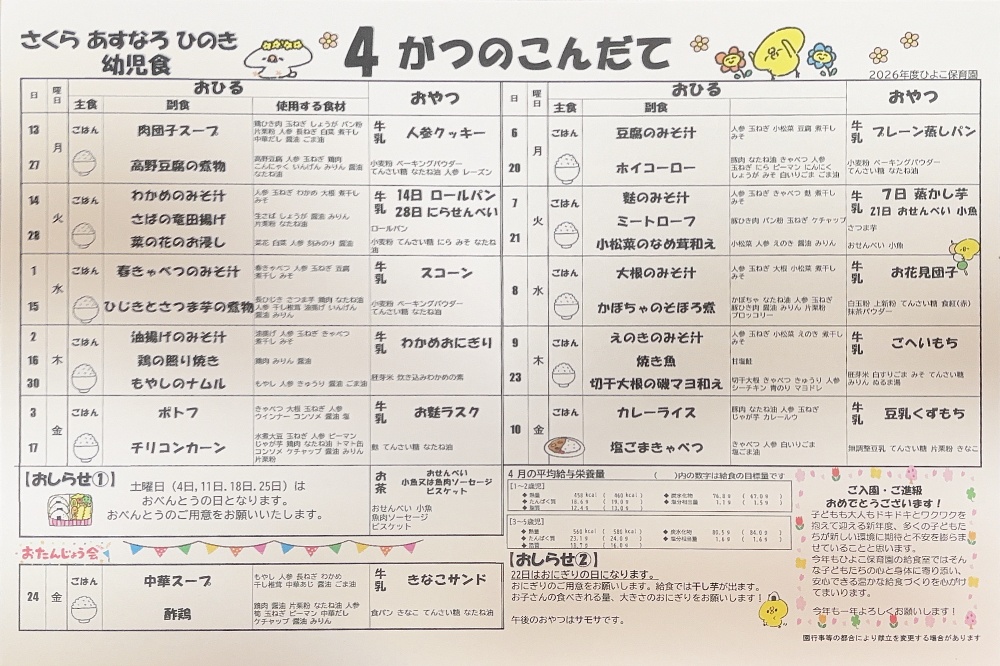 さくら あすなろ ひのき
幼児食
4 がつのこんだて
2026年度ひよこ保育園
日 曜日 おひる おやつ
主食 副食 使用する食材
13 月 ごはん 肉団子スープ
鶏ひき肉 玉ねぎ しょうが パン粉
片栗粉 人参 長ねぎ 白菜 煮干し
中華だし 醤油 ごま油
牛乳 人参クッキー
27 高野豆腐の煮物
高野豆腐 人参 玉ねぎ 鶏肉
こんにゃく いんげん みりん 醤油
なたね油
小麦粉 ベーキングパウダー
てんさい糖 なたね油 人参 レーズン
14 火 ごはん わかめのみそ汁
人参 玉ねぎ わかめ 大根 煮干し
みそ
牛乳 14日 ロールパン
28日 にらせんべい
さばの竜田揚げ
生さば しょうが 醤油 みりん
片栗粉 なたね油
ロールパン
28 菜の花のお浸し
菜花 白菜 人参 刻みのり 醤油
小麦粉 てんさい糖 にら みそ なたね油
1 水 ごはん 春きゃべつのみそ汁
春きゃべつ 人参 玉ねぎ 豆腐
煮干し みそ
牛乳 スコーン
15 ひじきとさつま芋の煮物
長ひじき さつま芋 鶏肉 なたね油
人参 干し椎茸 油揚げ いんげん
醤油 みりん
小麦粉 ベーキングパウダー
てんさい糖 なたね油
2 木 ごはん 油揚げのみそ汁
油揚げ 人参 玉ねぎ きゃべつ
煮干し みそ
牛乳 わかめおにぎり
16 鶏の照り焼き
鶏肉 みりん 醤油
30 もやしのナムル
もやし 人参 きゅうり 醤油 ごま油
胚芽米 炊き込みわかめの素
3 金 ごはん ポトフ
きゃべつ 大根 玉ねぎ 人参
ウインナー コンソメ 醤油 塩
牛乳 お麩ラスク
17 チリコンカーン
水煮大豆 玉ねぎ 人参 ピーマン
じゃが芋 鶏肉 なたね油 トマト缶
コンソメ ケチャップ 醤油 みりん
片栗粉
麩 てんさい糖 なたね油
【おしらせ①】
土曜日（4日,11日、18日、25日）は
おべんとうの日となります。
おべんとうのご用意をお願いいたします。
お茶 おせんべい
小魚又は魚肉ソーセージ
ビスケット
おせんべい 小魚
魚肉ソーセージ
ビスケット
おたんじょう会
24 金 ごはん 中華スープ
もやし 人参 長ねぎ わかめ
干し椎茸 中華あじ 醤油 ごま油
牛乳 きなこサンド
酢鶏
鶏肉 醤油 片栗粉 なたね油 人参
筍 玉ねぎ ピーマン 中華だし
ケチャップ 醤油 みりん
食パン きなこ てんさい糖 なたね油
日 曜日 おひる おやつ
主食 副食
6 月 ごはん 豆腐のみそ汁
人参 玉ねぎ 小松菜 豆腐 煮干し
みそ
牛乳 プレーン蒸しパン
20 ホイコーロー
豚肉 なたね油 きゃべつ 人参
玉ねぎ にら ピーマン にんにく
しょうが みそ 白いりごま ごま油
小麦粉 ベーキングパウダー
てんさい糖 なたね油
7 火 ごはん 麩のみそ汁
人参 玉ねぎ きゃべつ 麩 煮干し
みそ
牛乳 7日 蒸かし芋
21日 おせんべい 小魚
ミートローフ
豚ひき肉 パン粉 玉ねぎ ケチャップ
さつま芋
21 小松菜のなめ茸和え
小松菜 人参 えのき 醤油 みりん
おせんべい 小魚
8 水 ごはん 大根のみそ汁
人参 玉ねぎ 大根 小松菜 煮干し
みそ
牛乳 お花見団子
かぼちゃのそぼろ煮
かぼちゃ なたね油 人参 玉ねぎ
豚ひき肉 醤油 みりん 片栗粉
ブロッコリー
白玉粉 上新粉 てんさい糖 食紅(赤)
抹茶パウダー
9 木 ごはん えのきのみそ汁
人参 玉ねぎ 小松菜 えのき 煮干し
みそ
牛乳 ごへいもち
焼き魚
甘塩鮭
23 切干大根の磯マヨ和え
切干大根 きゃべつ きゅうり 人参
シーチキン 青のり マヨドレ
胚芽米 白すりごま みそ てんさい糖
みりん ぬるま湯
10 金 ごはん カレーライス
豚肉 なたね油 人参 玉ねぎ
じゃが芋 カレールウ
牛乳 豆乳くずもち
塩ごまきゃべつ
きゃべつ 人参 白いりごま
塩ごま油
無調整豆乳 てんさい糖 片栗粉 きなこ
4 月の平均給与栄養量 （ ）内の数字は給食の目標量です
[1～2歳児]
◆ 熱量 458 kcal ( 460 kcal )
◆ 炭水化物 76.0 g ( 67.0 g )
◆ たんぱく質 18.6 g ( 19.0 g )
◆ 塩分相当量 1.1 g ( 1.5 g )
◆ 脂質
[3～5歳児]
◆ 熱量 560 kcal ( 585 kcal )
◆ 炭水化物
◆ たんぱく質 23.1 g ( 24.0 g )
◆ 塩分相当量
◆ 脂質
【おしらせ②】
22日はおにぎりの日になります。
おにぎりのご用意をお願いします。給食では干し芋が出ます。
お子さんの食べきれる量、大きさのおにぎりをお願いします！
午後のおやつはサモサです。
ご入園・ご進級
おめでとうございます！
子どもも大人もドキドキとワクワクを
抱えて迎える新年度、多くの子どもた
ちが新しい環境に期待と不安を膨らま
せていることと思います。
今年もひよこ保育園の給食室ではそん
な子どもたちの心と身体に寄り添い、
安心できる温かな給食づくりを心がけ
てまいります。
今年も一年よろしくお願いします！
園行事等の都合により献立を変更する場合があります